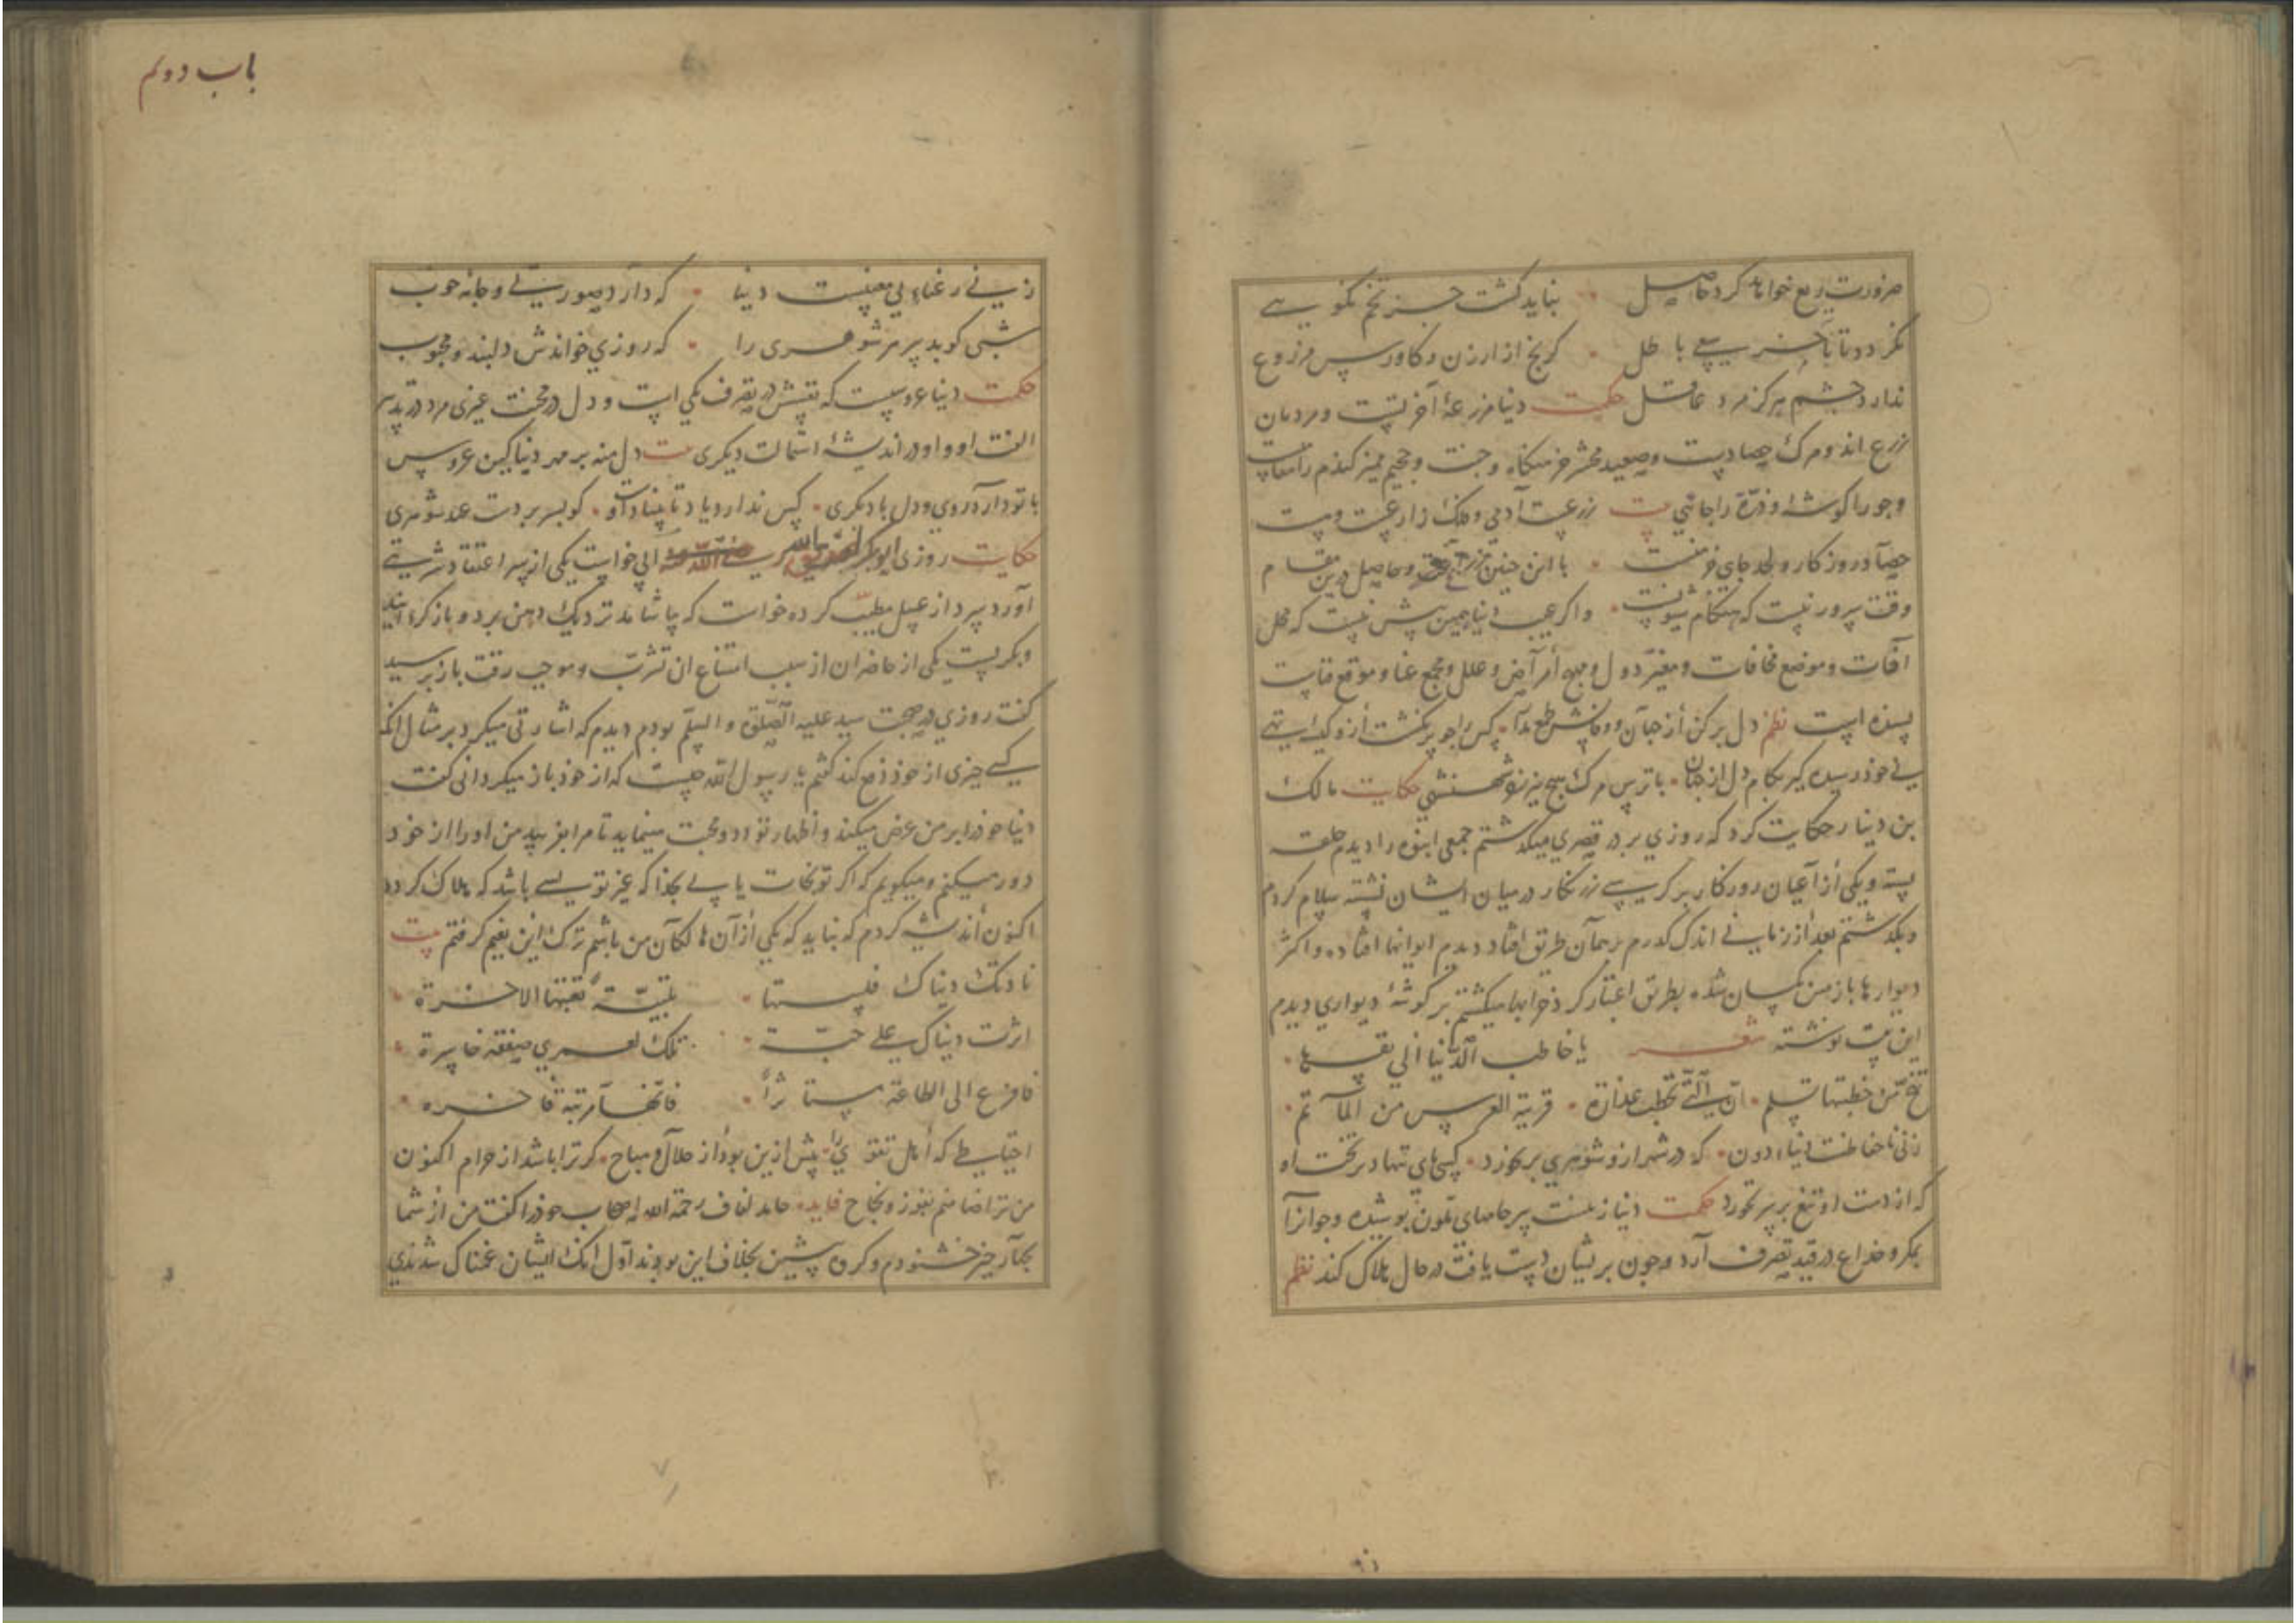 ضرورت ریع خواهد کرد حاصل • نباید کشت جز تخم نکویی
نکردد تا باخر سعی باطل • کرنج از ارزن و کاورس مزروع
ندارد چشم هرکز مرد عاقل حکمت دنیا مزرعهٔ آخرتست و مردمان
زرع اند و مرک حصادست و صعید محشر خرمنکاه و جنت و جحیم ممیز کندم را
وجو را کوشهٔ و ذرّه را جائی بیت زرعست آدمی و فلک زارعست و پست
حصاد روزکار و لحد جای خرمنست • با این چنین و حاصل درین مقام
وقت سرور نیست که هنکام شیونست • واکر عیب دنیا همین بیش نیست که محل
آفات و موضع مخافات و مغیّر دول و امراض و علل و مجمع عنا و موقع فناست
بسنده است نظم دل برکن از جهان و وفاش طمع مدار • کس را جو بر نکشت از و
بی خود رسیده کیر بکام دل از جهان • با ترس مرک هیچ نیرزد شهنشهی حکایت مالک
بن دینار حکایت کرد که روزی بر در قصری میکذشتم جمعی انبوه را دیدم حلقه
بسته و یکی از اعیان روزکار بر کرسی زرنکار در میان ایشان نشسته سلام کردم
و بکذشتم بعد از زمانی اندک کذرم بهمان طریق افتاد دیدم ایوانها افتاده و اکثر
دیوارها با زمین یکسان شده بطریق اعتبار کرد خرابها میکشتم بر کوشهٔ دیواری دیدم
این بیت نوشته شعر یا خاطب الدنیا الی نفسها •
تنحّ عن خطبتها تسلم • انّ التی تخطب غدّارة • قریبة العرس من المأتم •
زنی ناحفاظست دنیاء دون • که در شهر از و شوهری برنخورد • کسی پای ننهاد بر تخت او
که از دست او تیغ بر سر نخورد حکمت دنیا زنیست پیر جامهای ملون پوشیده و جوانرا
بمکر و خداع در قید تصرف آرد و چون بر ایشان دست یافت در حال هلاک کند نظم
باب دوم
زنی رعناء بی معنیست دنیا • که دارد صورتی و جامه خوب
شبی کوبد بسر مر شوهری را • که روزی خواندش دلبند و محبوب
حکمت دنیا عروسیست که نفسش در تصرف یکی است و دل در محبت غیری مرد در تدبیر
الفت او و او در اندیشهٔ استمالت دیکری بیت دل منه بر مهر دنیا کین عروس
با تو دارد روی و دل با دیکری • کس ندارد یاد تا بنیاد او • کو بسر بردست عهد شوهری
حکایت روزی ابوبکر الصدیق رضی الله عنه آبی خواست یکی از سر اعتقاد شربتی
آورد سرد از عسل مطیّب کرده خواست که بیاشامد نزدیک دهن برد و باز کردانید
و بکریست یکی از حاضران از سبب امتناع ان تشرّب و موجب رقت باز پرسید
کفت روزی در صحبت سید علیه الصّلوة و السلم بودم دیدم که اشارتی میکرد بر مثال انکه
کسی چیزی از خود دفع کند کفتم یا رسول الله چیست که از خود باز میکردانی کفت
دنیا خود را بر من عرض میکند و اظهار تودد و محبت مینماید تا مرا بفریبد من او را از خود
دور میکنم و میکویم که اکر تو نجات یابی بخدا که غیر تو بسی باشد که هلاک کردد
اکنون اندیشه کردم که نباید که یکی از آن هالکان من باشم ترک این نعیم کرفتم بیت
نادتک دنیاک فلبیتها • تلبیّةً تعقبها الاخرة •
اثرت دنیاک علی حبّ • تلک لعمری صفقة خاسرة •
فافزع الی الطاعة مستأثراً • فانّها مرتبة فاخره •
احتیاطی که اهل تقوی را • پیش ازین بود از حلال و مباح • کر ترا باشد از حرام اکنون
من ترا ضامنم بفوز و نجاح فایده حامد لفاف رحمة الله اصحاب خود را کفت من از شما
بچهار چیز خشنودم و کروه پیشین بخلاف این بودند اول انک ایشان غمناک شدندی